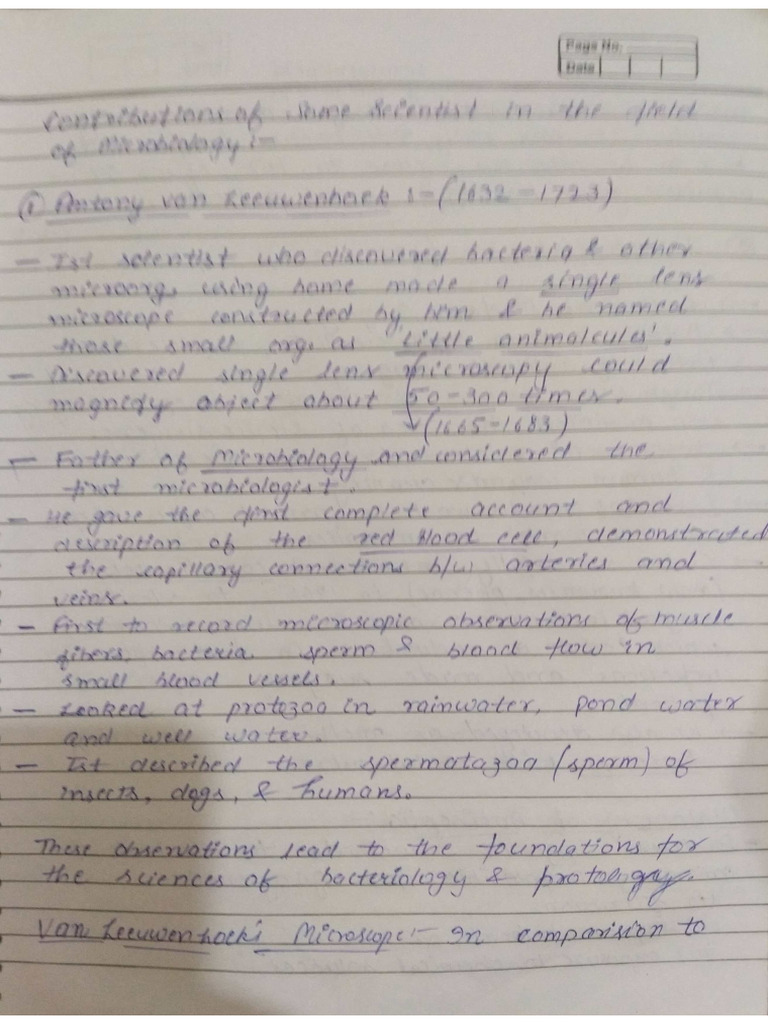 Page No.
Date
Contributions of Some Scientist in the field
of Microbiology :-
① Antony van Leeuwenhoek :- (1632 - 1723)
- Ist scientist who discovered bacteria & other
microorg. using home made a single lens
microscope constructed by him & he named
those small org. as 'little animalcules'.
- Discovered single lens microscopy could
magnify object about 50-300 times.
(1665-1683)
- Father of Microbiology and considered the
first microbiologist.
- He gave the first complete account and
description of the red blood cell, demonstrated
the capillary connections b/w arteries and
veins.
- First to record microscopic observations of muscle
fibers, bacteria sperm & blood flow in
small blood vessels.
- Looked at protozoa in rainwater, pond water
and well water.
- Ist described the spermatazoa (sperm) of
insects, dogs, & humans.
These observations lead to the foundations for
the sciences of bacteriology &
Van Leeuwenhoek's Microscope :- In comparision to